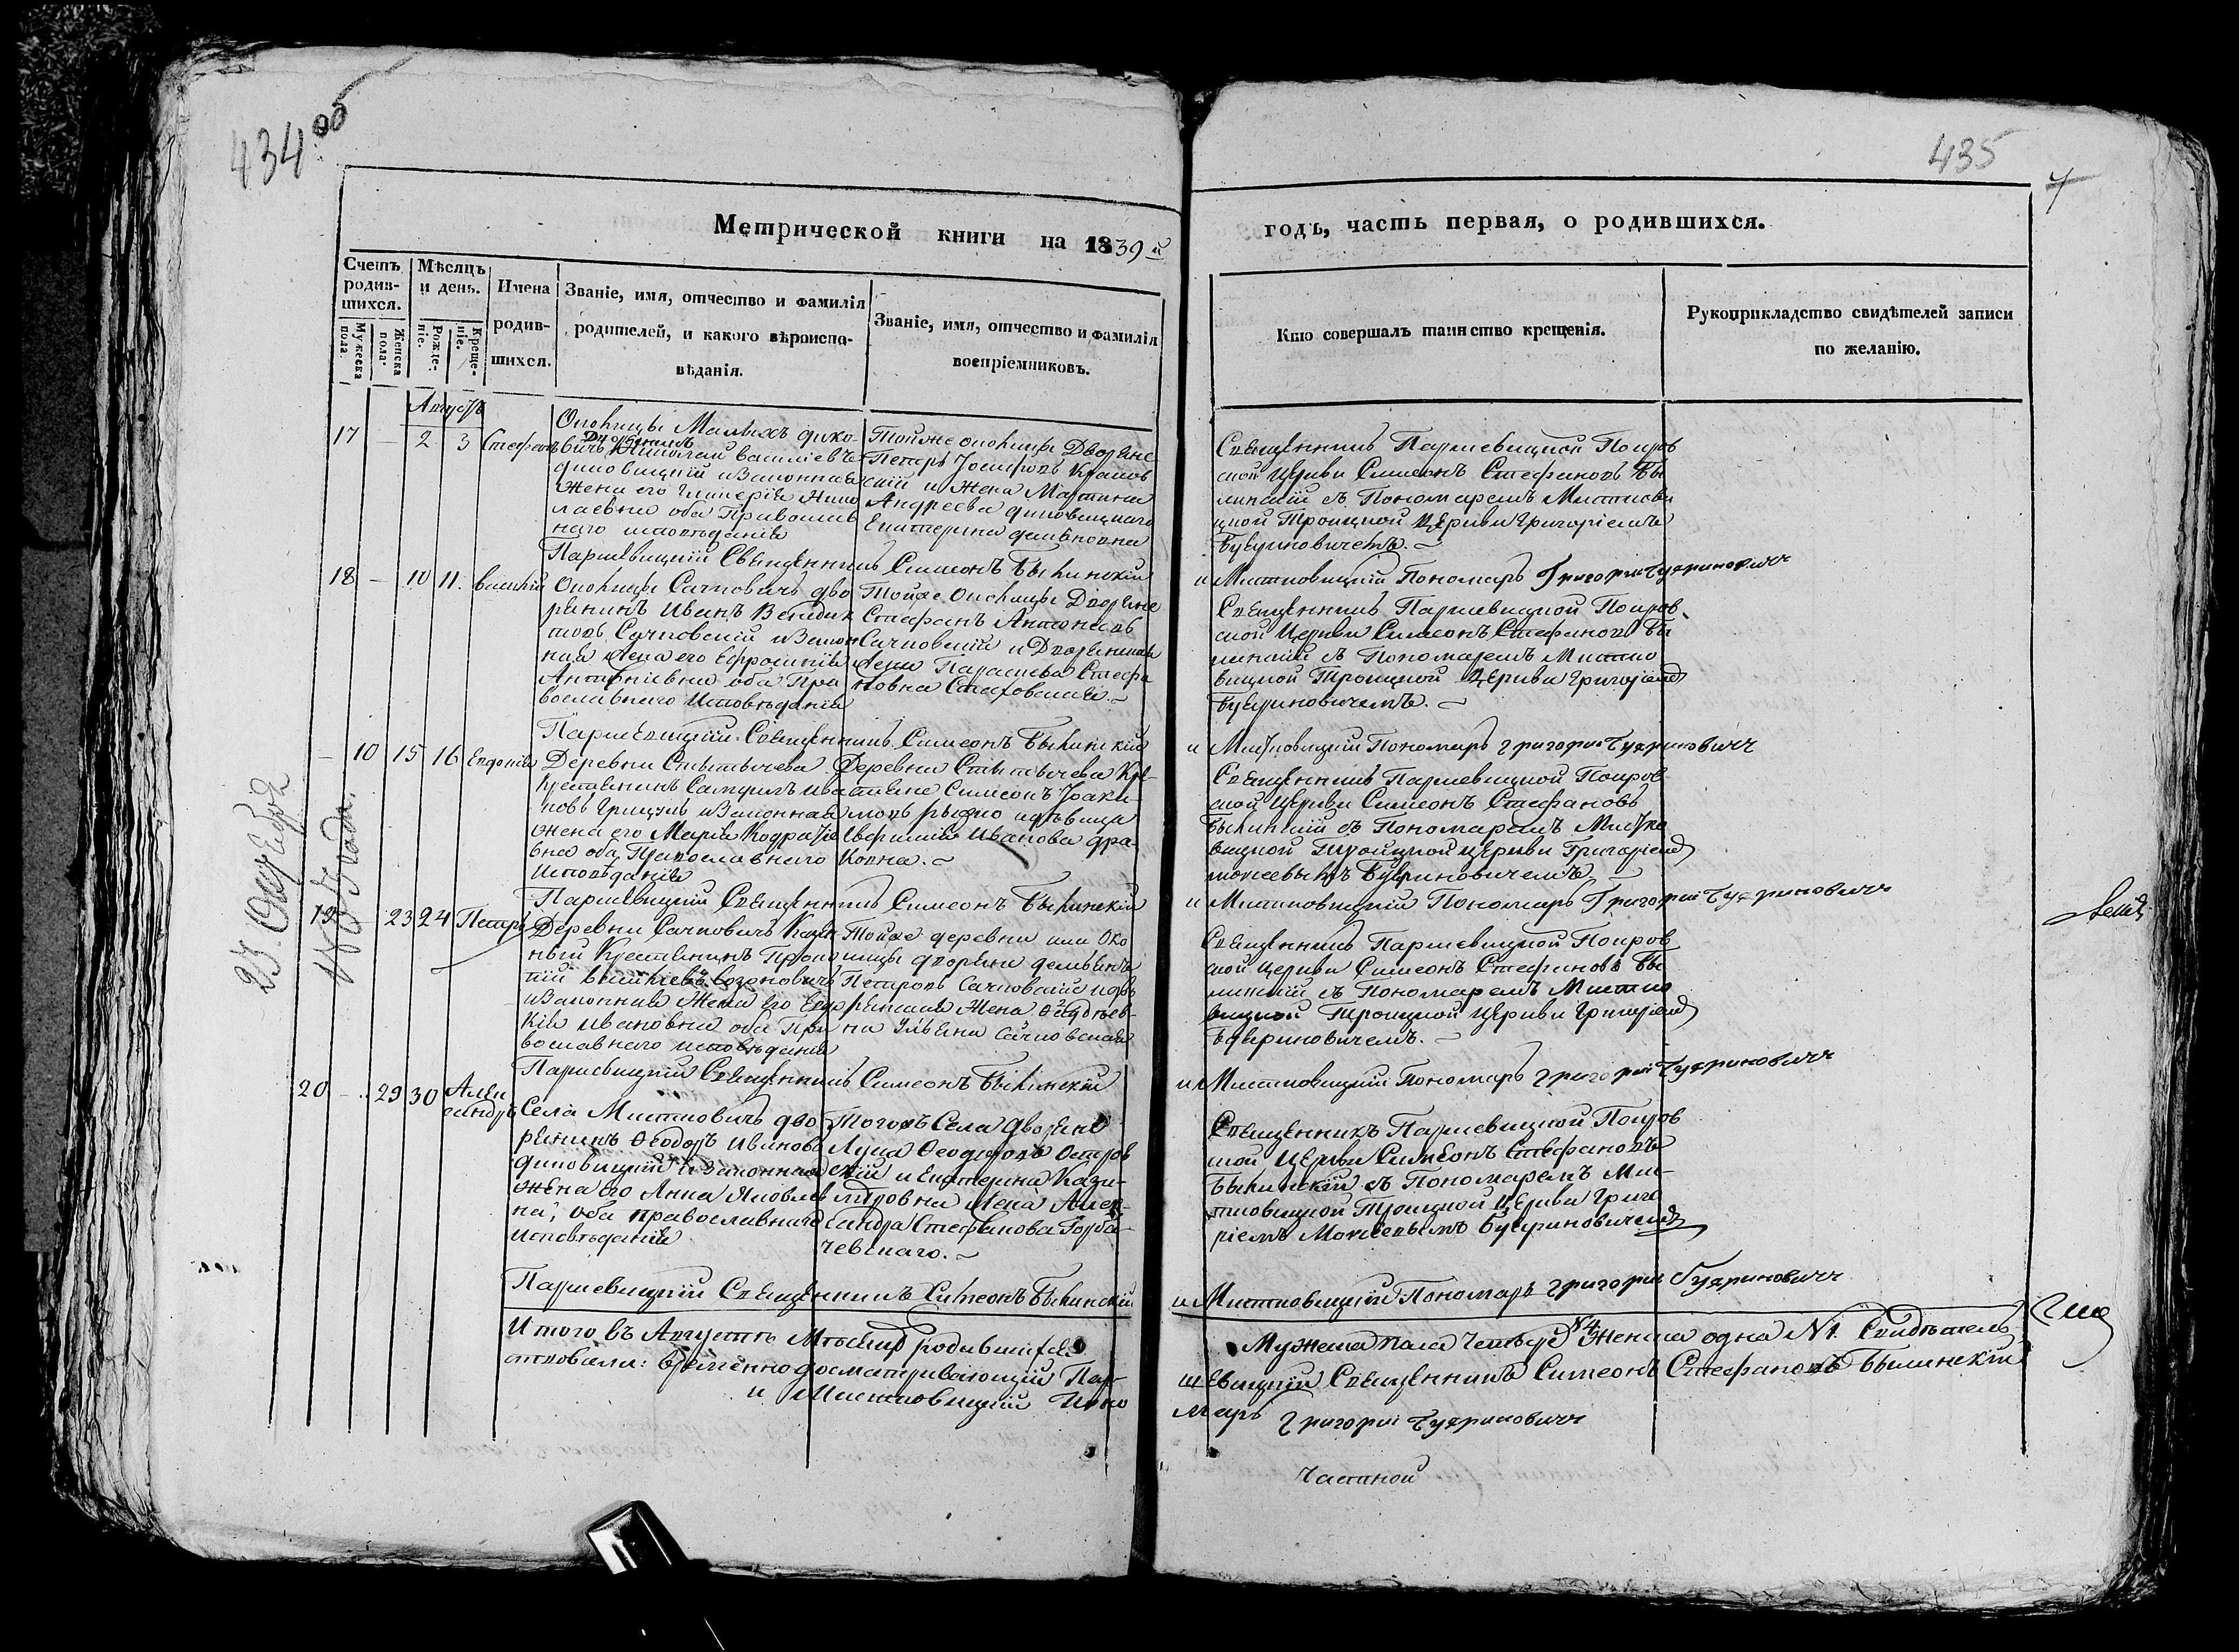 434 об
435
Метрической книги на 1839 й
годъ, часть первая, о родившихся.
Счетъ родив-шихся.
Мужеска пола.
Женска пола.
Мѣсяцъ и день.
Рожде-ніе.
Креще-ніе.
Имена родив-шихся.
Званіе, имя, отчество и фамилія
родителей, и какого вѣроиспо-
вѣданія.
Званіе, имя, отчество и фамилія
воспріемниковъ.
Кто совершалъ таинство крещенія.
Рукоприкладство свидѣтелей записи
по желанію.
Августъ
17 – 2 3 Стефанъ
Околицы Малыхъ Дико-
вичъ Дворянинъ Николай Василіевъ
Диковицкій и Законная
жена его Гликерія Нико
лаевна оба Православ
наго исповѣданія
Тойже околицы Дворяне
Петръ Іосифовъ
и жена Мартина
Андреева Диковицкаго
Екатерина
Священникъ Паршевицкой Покров
ской Церкви Симеонъ Стефановъ Бы
линскій съ Пономаремъ Мисткови
цкой Троицкой Церкви Григоріемъ
Букриновичемъ.
Паршевицкій Священникъ Симеонъ Былинскій
и Мистковицкій Пономарь Григорій Букриновичъ
18 – 10 11. Василій
Околицы Сачковичъ Дво
рянинъ Иванъ Венедик
товъ Сачковскій и Закон
ная жена его Ефросинія
Антоніевна оба Пра
вославнаго Исповѣданія
Тойже Околицы Дворяне
Стефанъ Антоновъ
Сачковскій и Дворянина
жена Параскева Стефа
новна Стаховская.
Священникъ Паршевицкой Покров
ской Церкви Симеонъ Стефановъ Бы
линскій съ Пономаремъ Мистко
вицкой Троицкой Церкви Григоріемъ
Букриновичемъ.
Паршевицкій Священникъ Симеонъ Былинскій
и Мистковицкій Пономарь Григорій Букриновичъ
– 10 15 16 Евдокія
Деревни Стытычева
Крестьянинъ Самуилъ
новъ Грицукъ и Законная
жена его Марія Кодратіе
вна оба Православнаго
Исповѣданія
Деревни Стытычева Кре-
стьяне Симеонъ Іоаки-
мовъ и дѣвица
Евфимія Иванова
ковна.
Священникъ Паршевицкой Покров
ской Церкви Симеонъ Стефановъ
Былинскій съ Пономаремъ Мистко
вицкой Троицкой Церкви Григоріемъ
Моисеевымъ Букриновичемъ
Паршевицкій Священникъ Симеонъ Былинскій
и Мистковицкій Пономарь Григорій Букриновичъ
19 – 23 24 Петръ
Деревни Сачковичъ Казен
ный Крестьянинъ Проко
пій Василіевъ
и Законная жена его Евдо
кія Ивановна оба Пра
вославнаго исповѣданія
Тойже деревни или Око
лицы Дворяне Демьянъ
Петровъ Сачковскій и дво
рянская жена
на Ульяна Сачковская
Священникъ Паршевицкой Покров
ской Церкви Симеонъ Стефановъ Бы
линскій съ Пономаремъ Мистко
вицкой Троицкой Церкви Григоріемъ
Букриновичемъ.
Паршевицкій Священникъ Симеонъ Былинскій
и Мистковицкій Пономарь Григорій Букриновичъ
20 – 29 30 Алек
сандръ
Села Мистковичъ дво
рянинъ Ѳеодоръ Ивановъ
Диковицкій и Законная
жена его Анна Яковлев
на, оба православнаго
исповѣданія
Тогожъ Села Дворяне
Лука Ѳеодоровъ Остров
скій и Екатерина Кази-
мировна жена Алек-
сандра Стефанова Горба-
чевскаго.
Священникъ Паршевицкой Покров
ской Церкви Симеонъ Стефановъ
Былинскій съ Пономаремъ Мис-
тковицкой Троицкой Церкви Григо
ріемъ Моисеевымъ Букриновичемъ
Паршевицкій Священникъ Симеонъ Былинскій
и Мистковицкій Пономарь Григорій Букриновичъ
Итого въ Августѣ Мѣсяцѣ родившихся
Мужеска пола четыре №4 Женска одна №1. Свидѣтель
ствовали: Временно досматривающій Пар-
шевицкій Священникъ Симеонъ Стефановъ Былинскій
и Мистковицкій Поно
марь Григорій Букриновичъ
Частной